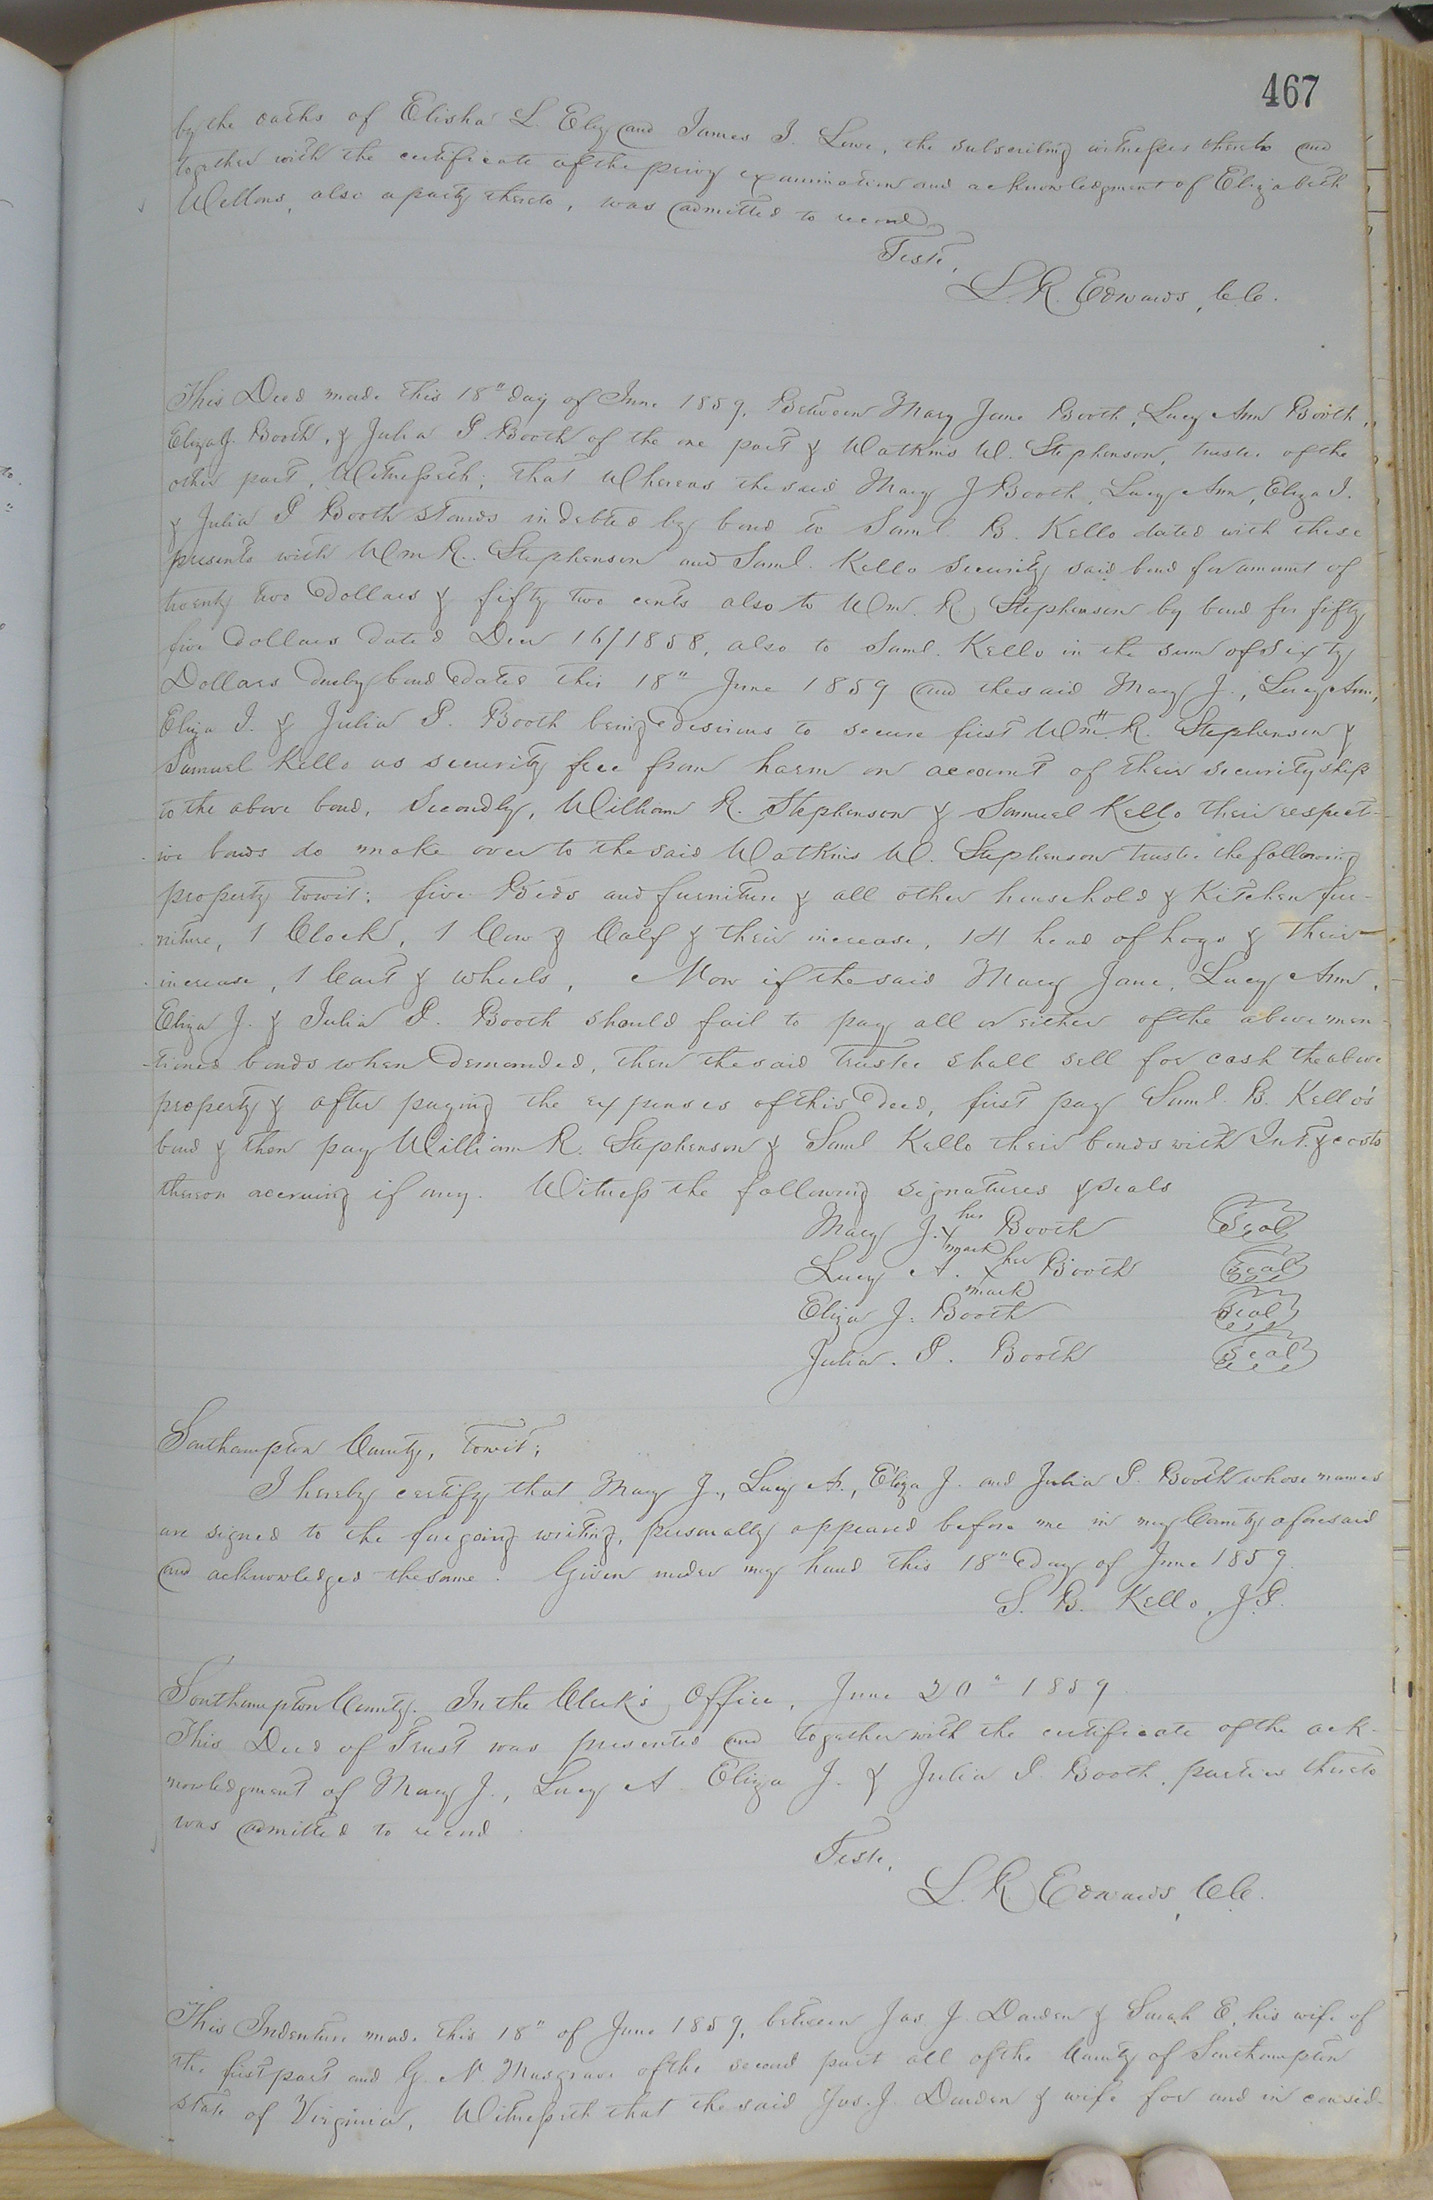 467
by the oaths of Elisha L. Ely and James J. Lowe, the subscribing witnesses thereto and
together with the certificate of the privy examination and acknowledgment of Elizabeth
Wellons, also a party thereto, was admitted to record
Teste,
L. R. Edwards, C.C.
This Deed made this 18" day of June 1859, Between Mary Jane Booth, Lucy Ann Booth,
Eliza J. Booth, & Julia P. Booth of the one part & Watkins W. Stephenson, trustee of the
other part, Witnesseth; that Whereas the said Mary J Booth, Lucy Ann, Eliza J.
& Julia P Booth stands indebted by bond to Saml. B. Kello dated with these
presents with Wm R. Stephenson and Saml. Kello Security said bond for amount of
twenty two Dollars & fifty two cents also to Wm. R Stephenson by bond for fifty
five dollars dated Decr 16/1858, also to Saml. Kello in the sum of Sixty
Dollars due by bond dated this 18" June 1859 and the said Mary J., Lucy Ann,
Eliza J. & Julia P. Booth being desirous to secure first Wm. R. Stephenson &
Samuel Kello as security free from harm on account of their securityship
to the above bond, Secondly, William R. Stephenson & Samuel Kello their respect-
ive bonds do make over to the said Watkins W. Stephenson trustee the following
property towit: five Beds and furniture & all other household & Kitchen fur-
niture, 1 Clock, 1 Cow & Calf & their increase, 14 head of hogs & their
increase, 1 Cart & wheels, Now if the said Mary Jane, Lucy Ann,
Eliza J. & Julia P. Booth should fail to pay all or either of the above men-
tioned bonds when demanded, then the said trustee shall sell for cash the above
property & after paying the expenses of this Deed, first pay Saml. B. Kello's
bond & then pay William R. Stephenson & Saml Kello their bonds with Int. & costs
thereon accruing if any. Witness the following signatures & seals
Mary J. her x mark Booth Seal
Lucy A. her x mark Booth Seal
Eliza J. Booth Seal
Julia. P. Booth Seal
Southampton County, towit;
I hereby certify that Mary J., Lucy A., Eliza J. and Julia P. Booth whose names
are signed to the foregoing writing, personally appeared before me in my County aforesaid
and acknowledged the same. Given under my hand this 18" day of June 1859.
S. B. Kello, J.P.
Southampton County. In the Clerk's Office, June 20" 1859
This Deed of Trust was presented and together with the certificate of the ack-
nowledgment of Mary J., Lucy A Eliza J. & Julia P. Booth, parties thereto
was admitted to record
Teste,
L. R. Edwards, C.C.
This Indenture made this 18" of June 1859, between Jas. J. Darden & Sarah E. his wife of
the first part and G. N. Musgrave of the second part all of the County of Southampton
state of Virginia, Witnesseth that the said Jas. J. Darden & wife for and in consid-